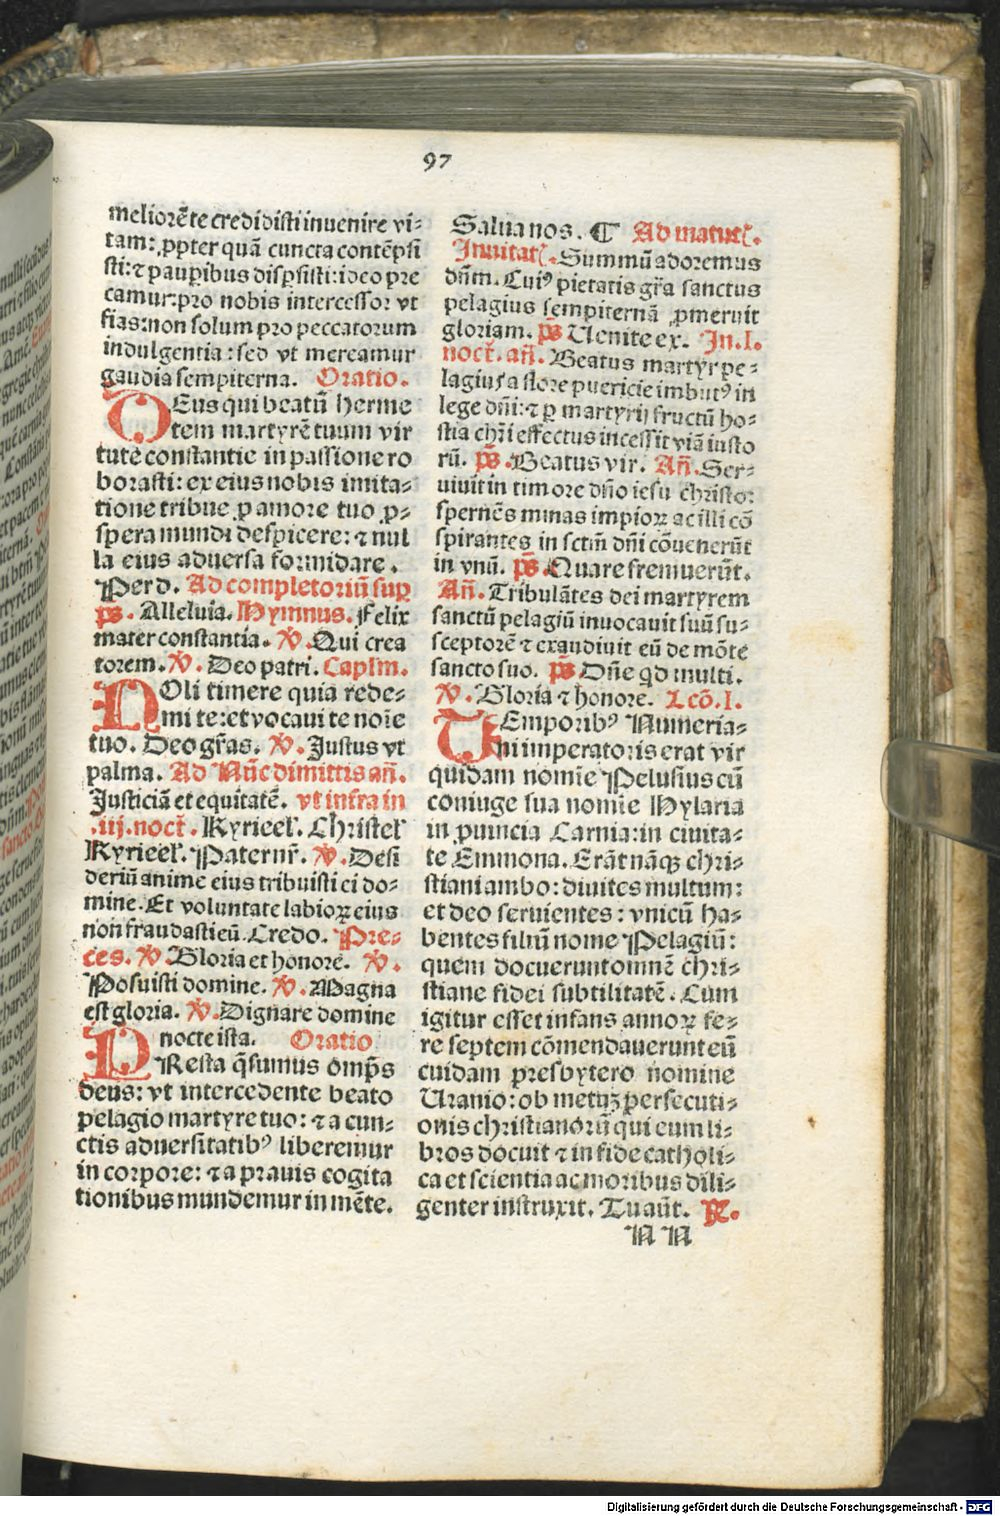 97
meliorē te credidisti inuenire vi⸗
tam: ꝓpter quā cuncta contēpsi
sti: ⁊ pauꝑibus disꝑsisti: ideo pre
camur: pro nobis intercessor vt
fias: non solum pro peccatorum
indulgentia: sed vt mereamur
gaudia sempiterna. Oratio.
DEus qui beatū Herme
tem martyrē tuum vir
tute constantie in passione ro
borasti: ex eius nobis imita⸗
tione tribue ꝓ amore tuo ꝓ⸗
spera mundi despicere: ⁊ nul
la eius aduersa formidare.
Per d. Ad completoriū suꝑ
ps. Alleluia. Hymnus. Felix
mater constantia. ℣. Qui crea
torem. ℣. Deo patri. Caplm.
NOli timere quia rede⸗
mi te: et vocaui te noīe
tuo. Deo gr̄as. ℣. Justus vt
palma. Ad Nūc dimittis añ.
Justiciā et equitatē. vt infra in
.iij. noct̄. Kyrieel̄. Christel̄
Kyrieel̄. Paternr̄. ℣. Desi
deriū anime eius tribuisti ei do⸗
mine. Et voluntate labioꝝ eius
non fraudasti eū. Credo. Pre⸗
ces. ℣. Gloria et honore. ℣.
Posuisti domine. ℣. Magna
est gloria. ℣. Dignare domine
nocte ista. Oratio
PResta q̄sumus om̄ps
deus: vt intercedente beato
pelagio martyre tuo: ⁊ a cun⸗
ctis aduersitatibꝰ liberemur
in corpore: ⁊ a prauis cogita
tionibus mundemur in mēte.
Salua nos. ¶ Ad matut̄.
Inuitat̄. Summū adoremus
dn̄m. Cuiꝰ pietatis gr̄a sanctus
pelagius sempiternā ꝓmeruit
gloriam. ps̄ Uenite ex. In .I.
noct̄. añ. Beatus martyr pe⸗
lagius a flore puericie imbutꝰ in
lege dn̄i: ⁊ ꝑ martyrij fructū ho⸗
stia chr̄i effectus incessit viā iusto
rū. ps̄. Beatus vir. Añ. Ser⸗
uiuit in timore dn̄o iesu christo:
spernēs minas impioꝝ ac illi cō
spirantes in sctm̄ dn̄i cōuenerūt
in vnū. ps̄. Quare fremuerūt.
Añ. Tribulātes dei martyrem
sanctū pelagiū inuocauit suū su⸗
sceptorē ⁊ exaudiuit eū de mōte
sancto suo. ps̄ Dn̄e qd̄ multi.
℣. Gloria ⁊ honore. Lcō. I.
TEmporibꝰ Numeria⸗
ni imperatoris erat vir
quidam nomīe Pelusius cū
coniuge sua nomīe Hylaria
in ꝓuincia Carnia: in ciuita⸗
te Emmona. Erāt nāqꝫ chri⸗
stiani ambo: diuites multum:
et deo seruientes: vnicū ha⸗
bentes filiū nome Pelagiū:
quem docuerunt omnē chri⸗
stiane fidei subtilitatē. Cum
igitur esset infans annoꝝ fe⸗
re septem cōmendauerunt eū
cuidam presbytero nomine
Uranio: ob metuꝫ persecuti⸗
onis christianorū qui eum li⸗
bros docuit ⁊ in fide catholi⸗
ca et scientia ac moribus dili⸗
genter instruxit. Tu aūt. ℟.
N N
Digitalisierung gefördert durch die Deutsche Forschungsgemeinschaft - DFG